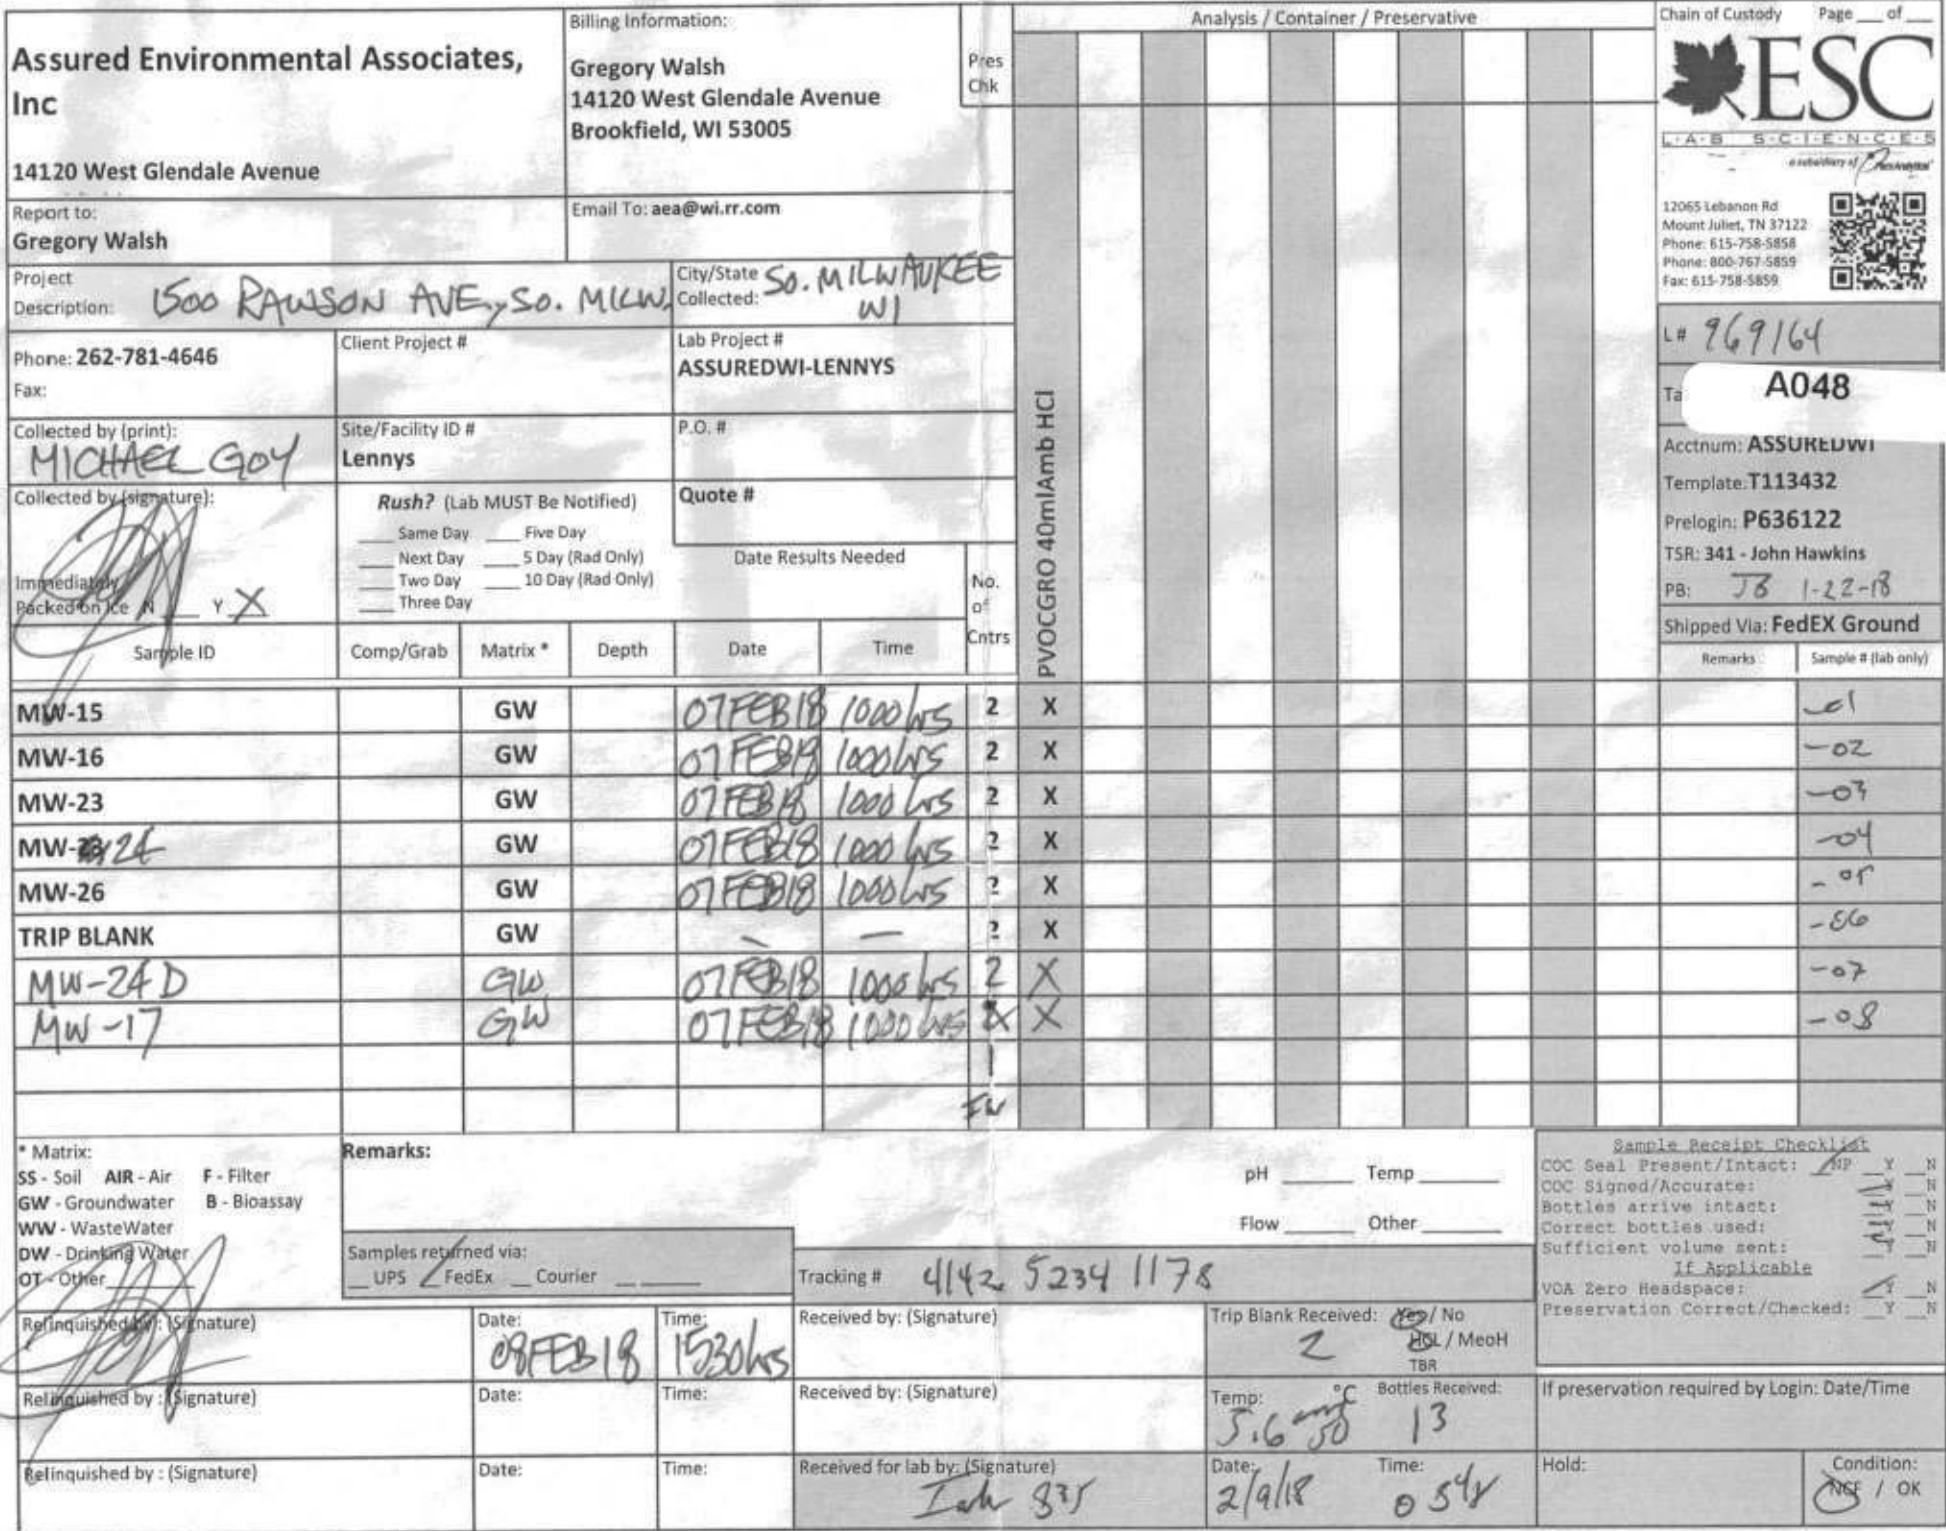 Assured Environmental Associates,
Inc
14120 West Glendale Avenue
Billing Information:
Gregory Walsh
14120 West Glendale Avenue
Brookfield, WI 53005
Pres
Chk
Analysis / Container / Preservative
Chain of Custody Page ___ of ___
ESC
L·A·B S·C·I·E·N·C·E·S
a subsidiary of
12065 Lebanon Rd
Mount Juliet, TN 37122
Phone: 615-758-5858
Phone: 800-767-5859
Fax: 615-758-5859
Report to:
Gregory Walsh
Email To: aea@wi.rr.com
Project
Description: 1500 RAWSON AVE, SO. MILW.
City/State
Collected: SO. MILWAUKEE
WI
L# 969164
Phone: 262-781-4646
Fax:
Client Project #
Lab Project #
ASSUREDWI-LENNYS
Ta
A048
Collected by (print):
MICHAEL GOY
Site/Facility ID #
Lennys
P.O. #
Acctnum: ASSUREDWI
Template: T113432
Prelogin: P636122
TSR: 341 - John Hawkins
PB: JB 1-22-18
Shipped Via: FedEX Ground
Collected by (signature):
Rush? (Lab MUST Be Notified)
___ Same Day ___ Five Day
___ Next Day ___ 5 Day (Rad Only)
___ Two Day ___ 10 Day (Rad Only)
___ Three Day
Quote #
Date Results Needed
Immediately
Packed on Ice N ___ Y X
No.
of
Cntrs
PVOCGRO 40mlAmb HCl
Sample ID Comp/Grab Matrix * Depth Date Time Remarks Sample # (lab only)
MW-15 GW 07FEB18 1000 hrs 2 X -01
MW-16 GW 07FEB18 1000 hrs 2 X -02
MW-23 GW 07FEB18 1000 hrs 2 X -03
MW-24 GW 07FEB18 1000 hrs 2 X -04
MW-26 GW 07FEB18 1000 hrs 2 X -05
TRIP BLANK GW — — 2 X -06
MW-24D GW 07FEB18 1000 hrs 2 X -07
MW-17 GW 07FEB18 1000 hrs X -08
1
* Matrix:
SS - Soil AIR - Air F - Filter
GW - Groundwater B - Bioassay
WW - WasteWater
DW - Drinking Water
OT - Other
Remarks:
pH ___ Temp ___
Flow ___ Other ___
Sample Receipt Checklist
COC Seal Present/Intact: NP Y N
COC Signed/Accurate: Y N
Bottles arrive intact: Y N
Correct bottles used: Y N
Sufficient volume sent: Y N
If Applicable
VOA Zero Headspace: Y N
Preservation Correct/Checked: Y N
Samples returned via:
__ UPS ✓ FedEx __ Courier __ ___
Tracking # 4142 5234 1178
Relinquished by: (Signature)
Date: 08FEB18
Time: 1530hrs
Received by: (Signature)
Trip Blank Received: Yes / No
2 HCL / MeoH
TBR
Relinquished by : (Signature)
Date:
Time:
Received by: (Signature)
Temp: °C
5.6
Bottles Received:
13
If preservation required by Login: Date/Time
Relinquished by : (Signature)
Date:
Time:
Received for lab by: (Signature)
Date: 2/9/18
Time:
Hold:
Condition:
NCF / OK